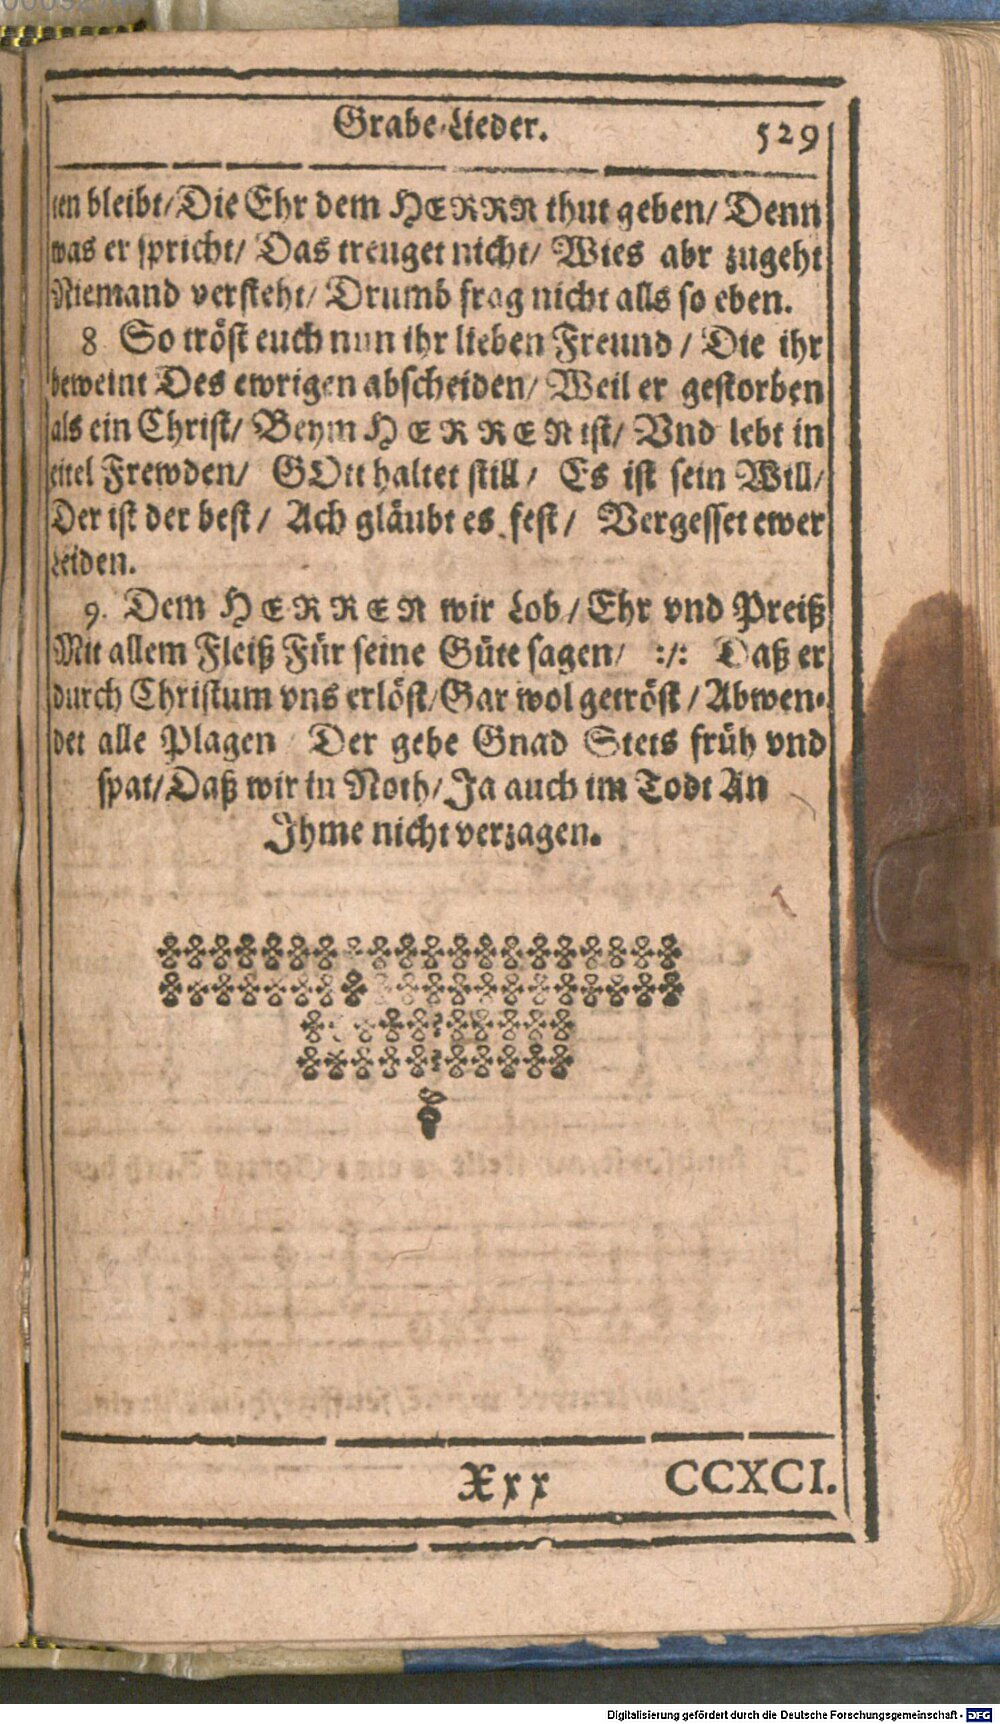 Grabe-Lieder. 529
ten bleibt/ Die Ehr dem HERRN thut geben/ Denn
was er spricht/ Das treuget nicht/ Wies abr zugeht
Niemand versteht/ Drumb frag nicht alls so eben.
8 So tröst euch nun ihr lieben Freund / Die ihr
beweint Des ewrigen abscheiden/ Weil er gestorben
als ein Christ/ Beym HERREN ist/ Vnd lebt in
eitel Frewden/ GOtt haltet still/ Es ist sein Will/
Der ist der best/ Ach gläubt es fest/ Vergesset ewer
Leiden.
9. Dem HERREN wir Lob/ Ehr vnd Preiß
Mit allem Fleiß Für seine Güte sagen/ :/: Daß er
durch Christum vns erlöst/ Gar wol getröst/ Abwen-
det alle Plagen Der gebe Gnad Stets früh vnd
spat/ Daß wir in Noth/ Ja auch im Todt An
Ihme nicht verzagen.
Xxx CCXCI.
Digitalisierung gefördert durch die Deutsche Forschungsgemeinschaft - DFG